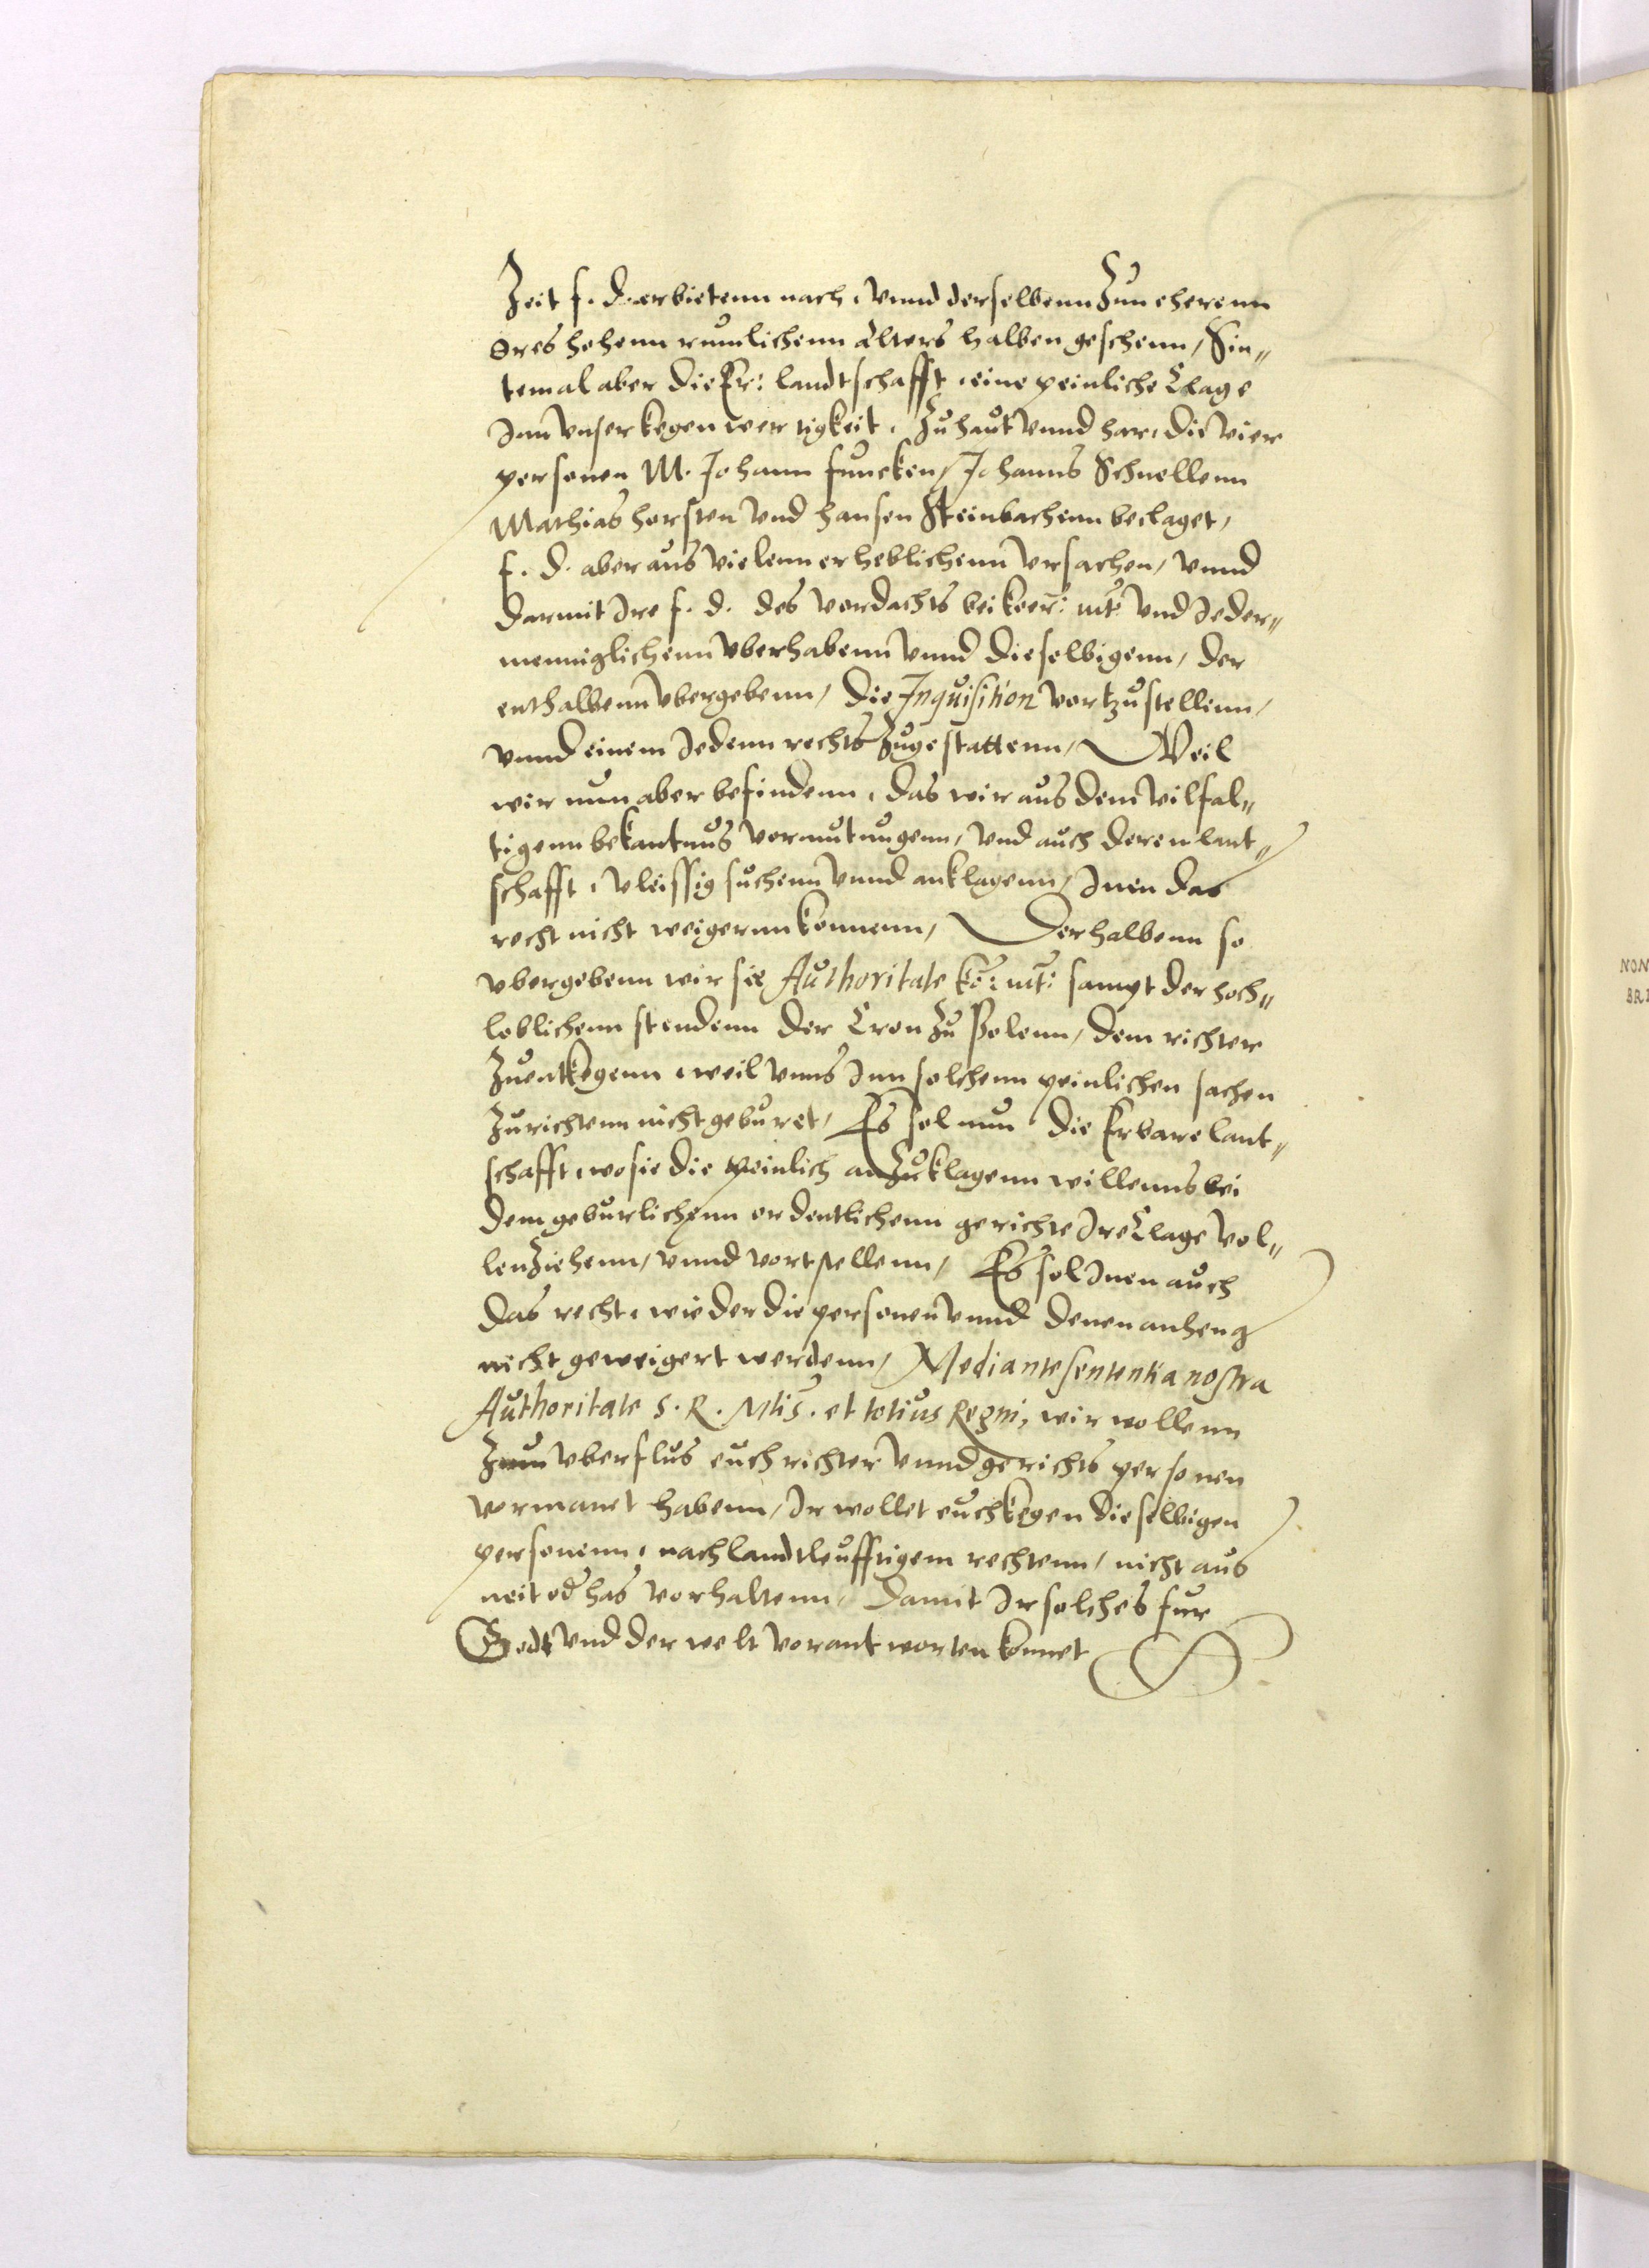 Zeit f. d. erbietenn nach, vnnd derselbenn Zun eherenn
Ires hohenn rumlichenn alters halben geschenn, Sin„
temal aber die Er: landtschafft, eine peinliche Clage
Inn vnser kegenwertigkeit, Zu haut vnnd har, die vier
personen M. Johann Funcken, Johanns Schnellenn
Mathias Horsten vnd Hansen Steinbachenn beclaget,
f. d. aber aus vielenn erheblichenn vrsachen, vnnd
darmit Ire f. d. des verdachts bei koer: mt: vnd Jeder„
menniglichenn vberhabenn vnnd dieselbigenn, der
enthalbenn vbergebenn, die Inquisition vortzustellenn,
vnnd einem Jedenn rechts Zugestattenn, Weil
wir nun aber befindenn, das wir aus dem vilfal„
tigenn bekantnus vermutungenn, vnd auch deren lant„
schafft, vleissig suchenn vnnd anklagenn, Inen das
recht nicht weigernn konnenn, Derhalbenn so
vbergebenn wir sie Authoritate ko: mt: sampt der hoch„
loblichenn stendenn der Cron Zu Polenn, dem richter
Zuentkegenn, weil vnns Inn solchenn peinlichen sachen
Zurichtenn nicht geburet, Es sol nun die Erbare lant„
schafft, wo sie die peinlich anZuklagenn willenns bei
dem geburlichenn ordentlichenn gerichte Ire Clage vol„
lenZiehenn, vnnd vortstellenn, Es sol Inen auch
das recht, wieder die personen vnnd denen anheng
nicht geweigert werdenn, Mediante sententia nostra
Authoritate S. R. Mtis. et totius Regni, wir wollenn
Zum vberflus euch richter vnnd gerichts personen
vormanet habenn, Ir wollet euch kegen dieselbigen
personenn, nach landtleufftigem rechtenn, nicht aus
neit od has vorhaltenn, Damit Ir solches fur
Godt vnd der welt vorantworten konnet